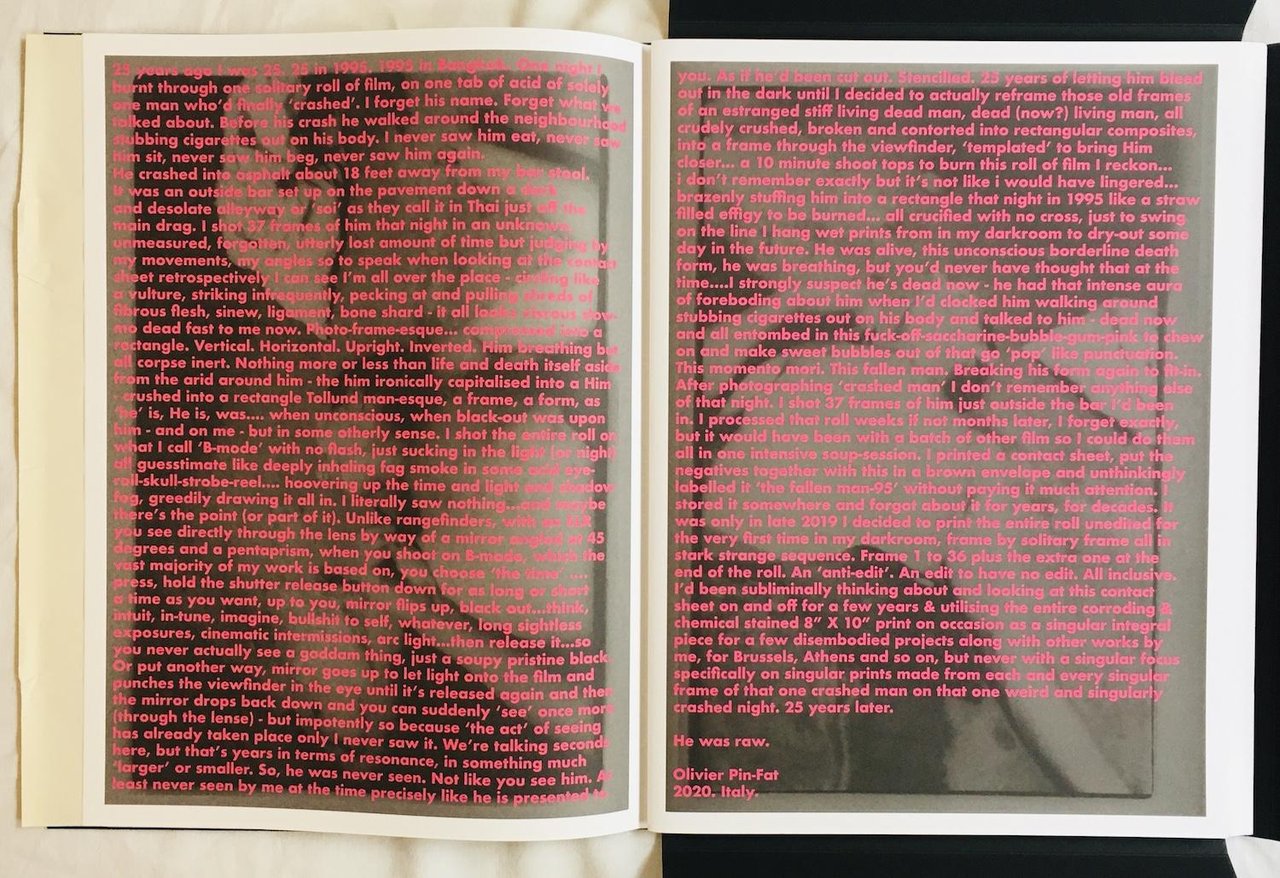 25 years ago I was 25. 25 in 1995. 1995 in Bangkok. One night I
burnt through one solitary roll of film, on one tab of acid of solely
one man who'd finally 'crashed'. I forget his name. Forget what we
talked about. Before his crash he walked around the neighbourhood
stubbing cigarettes out on his body. I never saw him eat, never saw
him sit, never saw him beg, never saw him again.
He crashed into asphalt about 18 feet away from my bar stool.
It was an outside bar set up on the pavement down a dark
and desolate alleyway or 'soi' as they call it in Thai just off the
main drag. I shot 37 frames of him that night in an unknown,
unmeasured, forgotten, utterly lost amount of time but judging by
my movements, my angles so to speak when looking at the contact
sheet retrospectively I can see I'm all over the place - circling like
a vulture, striking infrequently, pecking at and pulling shreds of
fibrous flesh, sinew, ligament, bone shard - it all looks viscous slow-
mo dead fast to me now. Photo-frame-esque... compressed into a
rectangle. Vertical. Horizontal. Upright. Inverted. Him breathing but
all corpse inert. Nothing more or less than life and death itself aside
from the arid around him - the him ironically capitalised into a Him
- crushed into a rectangle Tollund man-esque, a frame, a form, as
'he' is, He is, was.... when unconscious, when black-out was upon
him - and on me - but in some otherly sense. I shot the entire roll on
what I call 'B-mode' with no flash, just sucking in the light (or night)
all guesstimate like deeply inhaling fag smoke in some acid eye-
roll-skull-strobe-reel.... hoovering up the time and light and shadow
fog, greedily drawing it all in. I literally saw nothing...and maybe
there's the point (or part of it). Unlike rangefinders, with an SLR
you see directly through the lens by way of a mirror angled at 45
degrees and a pentaprism, when you shoot on B-mode, which the
vast majority of my work is based on, you choose 'the time' ....
press, hold the shutter release button down for as long or short
a time as you want, up to you, mirror flips up, black out...think,
intuit, in-tune, imagine, bullshit to self, whatever, long sightless
exposures, cinematic intermissions, arc light...then release it...so
you never actually see a goddam thing, just a soupy pristine black.
Or put another way, mirror goes up to let light onto the film and
punches the viewfinder in the eye until it's released again and then
the mirror drops back down and you can suddenly 'see' once more
(through the lense) - but impotently so because 'the act' of seeing
has already taken place only I never saw it. We're talking seconds
here, but that's years in terms of resonance, in something much
'larger' or smaller. So, he was never seen. Not like you see him. At
least never seen by me at the time precisely like he is presented to
you. As if he'd been cut out. Stencilled. 25 years of letting him bleed
out in the dark until I decided to actually reframe those old frames
of an estranged stiff living dead man, dead (now?) living man, all
crudely crushed, broken and contorted into rectangular composites,
into a frame through the viewfinder, 'templated' to bring Him
closer... a 10 minute shoot tops to burn this roll of film I reckon...
i don't remember exactly but it's not like i would have lingered...
brazenly stuffing him into a rectangle that night in 1995 like a straw
filled effigy to be burned... all crucified with no cross, just to swing
on the line I hang wet prints from in my darkroom to dry-out some
day in the future. He was alive, this unconscious borderline death
form, he was breathing, but you'd never have thought that at the
time....I strongly suspect he's dead now - he had that intense aura
of foreboding about him when I'd clocked him walking around
stubbing cigarettes out on his body and talked to him - dead now
and all entombed in this fuck-off-saccharine-bubble-gum-pink to chew
on and make sweet bubbles out of that go 'pop' like punctuation.
This momento mori. This fallen man. Breaking his form again to fit-in.
After photographing 'crashed man' I don't remember anything else
of that night. I shot 37 frames of him just outside the bar I'd been
in. I processed that roll weeks if not months later, I forget exactly,
but it would have been with a batch of other film so I could do them
all in one intensive soup-session. I printed a contact sheet, put the
negatives together with this in a brown envelope and unthinkingly
labelled it 'the fallen man-95' without paying it much attention. I
stored it somewhere and forgot about it for years, for decades. It
was only in late 2019 I decided to print the entire roll unedited for
the very first time in my darkroom, frame by solitary frame all in
stark strange sequence. Frame 1 to 36 plus the extra one at the
end of the roll. An 'anti-edit'. An edit to have no edit. All inclusive.
I'd been subliminally thinking about and looking at this contact
sheet on and off for a few years & utilising the entire corroding &
chemical stained 8" X 10" print on occasion as a singular integral
piece for a few disembodied projects along with other works by
me, for Brussels, Athens and so on, but never with a singular focus
specifically on singular prints made from each and every singular
frame of that one crashed man on that one weird and singularly
crashed night. 25 years later.
He was raw.
Olivier Pin-Fat
2020. Italy.